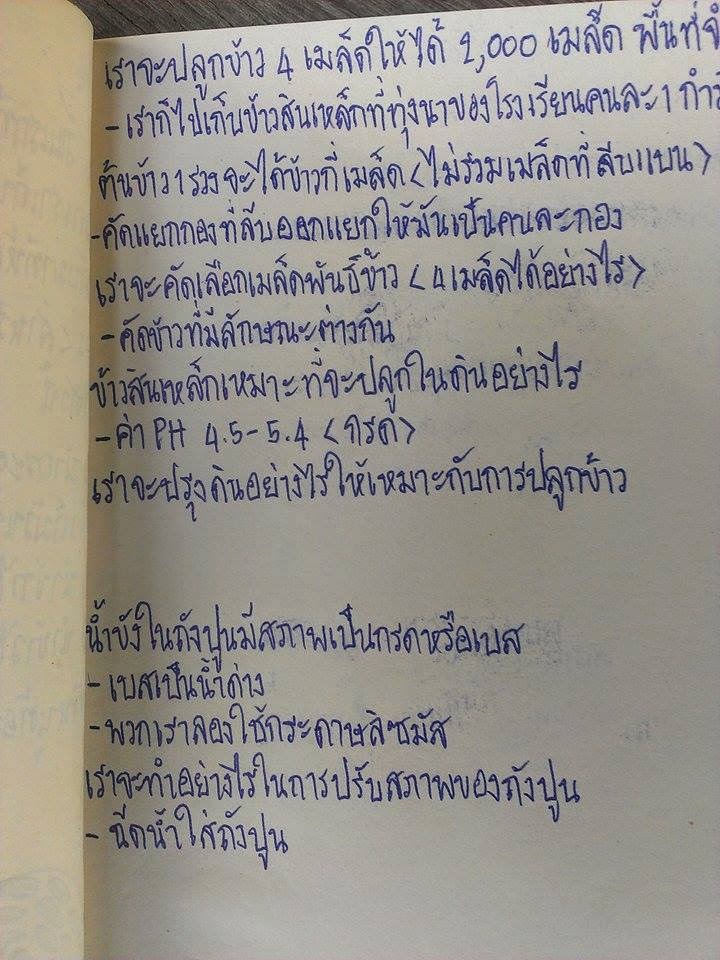 เราจะปลูกข้าว 4 เมล็ดให้ได้ 2,000 เมล็ด พื้นที่จำ
- เราก็ไปเก็บข้าวสินเหล็กที่ทุ่งนาของโรงเรียนคนละ 1 กำ
ต้นข้าว 1 รวงจะได้ข้าวกี่เมล็ด <ไม่รวมเมล็ดที่ลีบแบน>
- คัดแยกกองที่ลีบออกแยกให้มันเป็นคนละกอง
เราจะคัดเลือกเมล็ดพันธ์ข้าว <4 เมล็ดได้อย่างไร>
- คัดข้าวที่มีลักษณะต่างกัน
ข้าวสินเหล็กเหมาะที่จะปลูกในดินอย่างไร
- ค่า PH 4.5-5.4 <กรด>
เราจะปรุงดินอย่างไรให้เหมาะกับการปลูกข้าว
น้ำขังในถังปูนมีสภาพเป็นกรดหรือเบส
- เบสเป็นน้ำด่าง
- พวกเราลองใช้กระดาษลิซมัส
เราจะทำอย่างไรในการปรับสภาพของถังปูน
- ฉีดน้ำใส่ถังปูน